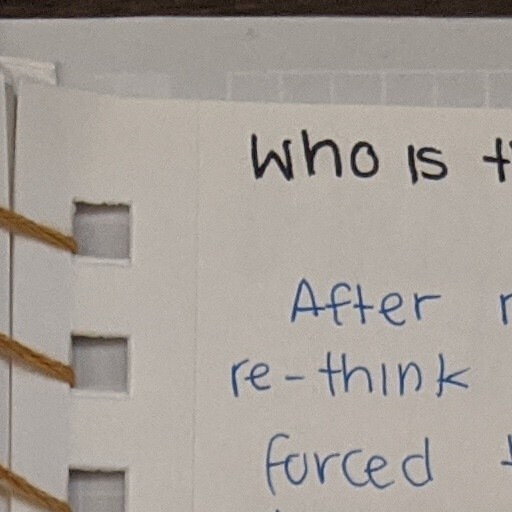 Who is
After
re-think
forced